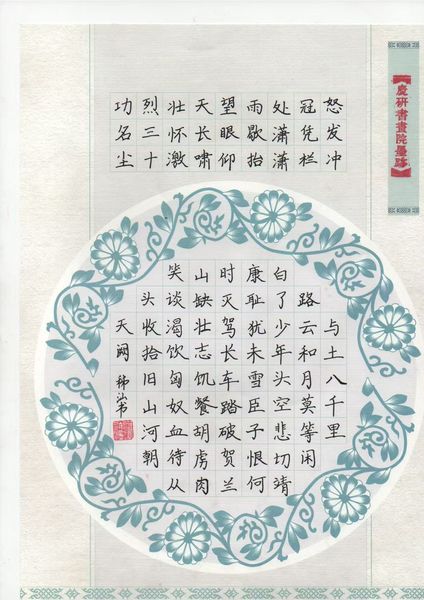 【慶研書畫院墨跡】
怒发冲
冠凭栏
处潇潇
雨歇抬
望眼仰
天长啸
壮怀激
烈三十
功名尘
与土八千里
路云和月莫等闲
白了少年头空悲切靖
康耻犹未雪臣子恨何
时灭驾长车踏破贺兰
山缺壮志饥餐胡虏肉
笑谈渴饮匈奴血待从
头收拾旧山河朝
天阙 书